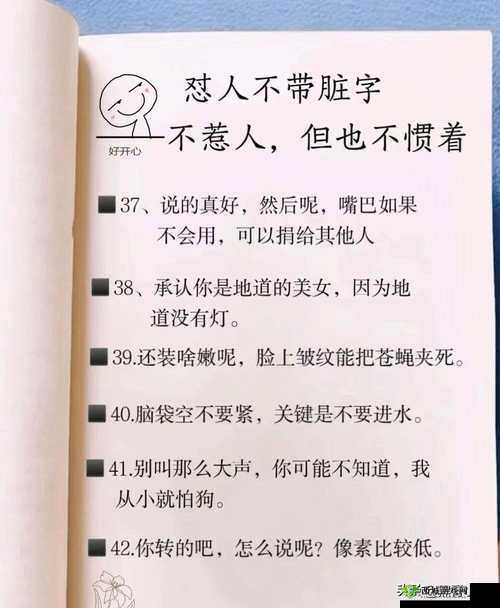 怼人不带脏字
不惹人，但也不惯着
好开心
37、说的真好，然后呢，嘴巴如果
不会用，可以捐给其他人
38、承认你是地道的美女，因为地
道没有灯。
39.还装啥嫩呢，脸上皱纹能把苍蝇夹死。
40.脑袋空不要紧，关键是不要进水。
41.别叫那么大声，你可能不知道，我
从小就怕狗。
42.你转的吧，怎么说呢？像素比较低。